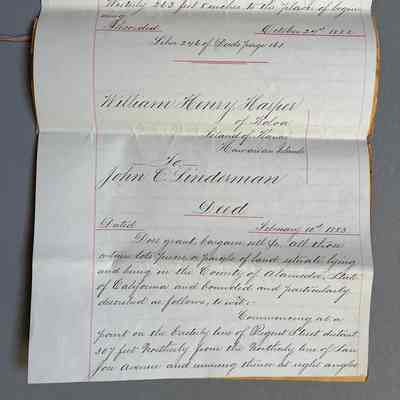 Westerly 263 feet 8 inches to the place of begin-
ning.
Recorded October 24th 1882
Liber 246 of Deeds page 161
William Henry Harper
of Koloa
Island of Kauai
Hawaiian Islands
To
John C. Linderman
Deed
Dated February 10th 1883
Does grant, bargain, sell &c. all those
certain lots pieces or parcels of land situate lying
and being in the County of Alameda, State
of California and bounded and particularly
described as follows, to wit:-
Commencing at a
point on the Easterly line of Regent Street distant
307 feet Northerly from the Northerly line of San
Jose Avenue and running thence at right angles